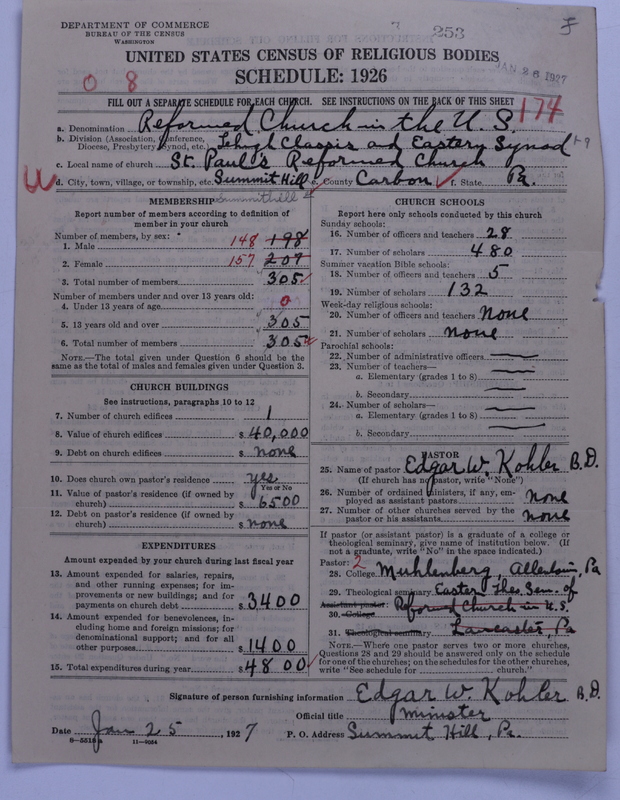 DEPARTMENT OF COMMERCE
BUREAU OF THE CENSUS
WASHINGTON
253
UNITED STATES CENSUS OF RELIGIOUS BODIES
JAN 26 1927
SCHEDULE: 1926
0 8
FILL OUT A SEPARATE SCHEDULE FOR EACH CHURCH. SEE INSTRUCTIONS ON THE BACK OF THIS SHEET
174
a. Denomination Reformed Church in the U.S.
b. Division (Association, Conference, Diocese, Presbytery, Synod, etc.) Lehigh Classis and Eastern Synod
c. Local name of church St. Paul's Reformed Church
d. City, town, village, or township, etc. Summit Hill e. County Carbon f. State Pa.
Summithill
MEMBERSHIP
Report number of members according to definition of
member in your church
Number of members, by sex:
1. Male 148 198
2. Female 157 207
3. Total number of members 305
Number of members under and over 13 years old:
4. Under 13 years of age 0
5. 13 years old and over 305
6. Total number of members 305
NOTE.—The total given under Question 6 should be the
same as the total of males and females given under Question 3.
CHURCH BUILDINGS
See instructions, paragraphs 10 to 12
7. Number of church edifices 1
8. Value of church edifices $40,000
9. Debt on church edifices $ none
10. Does church own pastor's residence yes
Yes or No
11. Value of pastor's residence (if owned by
church) $ 6500
12. Debt on pastor's residence (if owned by
church) $ none
EXPENDITURES
Amount expended by your church during last fiscal year
13. Amount expended for salaries, repairs,
and other running expenses; for im-
provements or new buildings; and for
payments on church debt $ 3400
14. Amount expended for benevolences, in-
cluding home and foreign missions; for
denominational support; and for all
other purposes $ 1400
15. Total expenditures during year $ 4800
CHURCH SCHOOLS
Report here only schools conducted by this church
Sunday schools:
16. Number of officers and teachers 28
17. Number of scholars 480
Summer vacation Bible schools:
18. Number of officers and teachers 5
19. Number of scholars 132
Week-day religious schools:
20. Number of officers and teachers None
21. Number of scholars None
Parochial schools:
22. Number of administrative officers
23. Number of teachers—
a. Elementary (grades 1 to 8)
b. Secondary
24. Number of scholars—
a. Elementary (grades 1 to 8)
b. Secondary
PASTOR
25. Name of pastor Edgar W. Kohler B.D.
(If church has no pastor, write "None")
26. Number of ordained ministers, if any, em-
ployed as assistant pastors none
27. Number of other churches served by the
pastor or his assistants none
If pastor (or assistant pastor) is a graduate of a college or
theological seminary, give name of institution below. (If
not a graduate, write "No" in the space indicated.)
Pastor: 2
28. College Muhlenberg, Allentown, Pa
29. Theological seminary Easter Theo. Sem. of
Assistant pastor: Reformed Church in U.S.
30. College
31. Theological seminary Lancaster, Pa
NOTE.—Where one pastor serves two or more churches,
Questions 28 and 29 should be answered only on the schedule
for one of the churches; on the schedules for the other churches,
write "See schedule for church."
Signature of person furnishing information Edgar W. Kohler B.D.
Official title minister
Date Jan 25, 1927 P. O. Address Summit Hill, Pa.
8-5518 a 11-9054